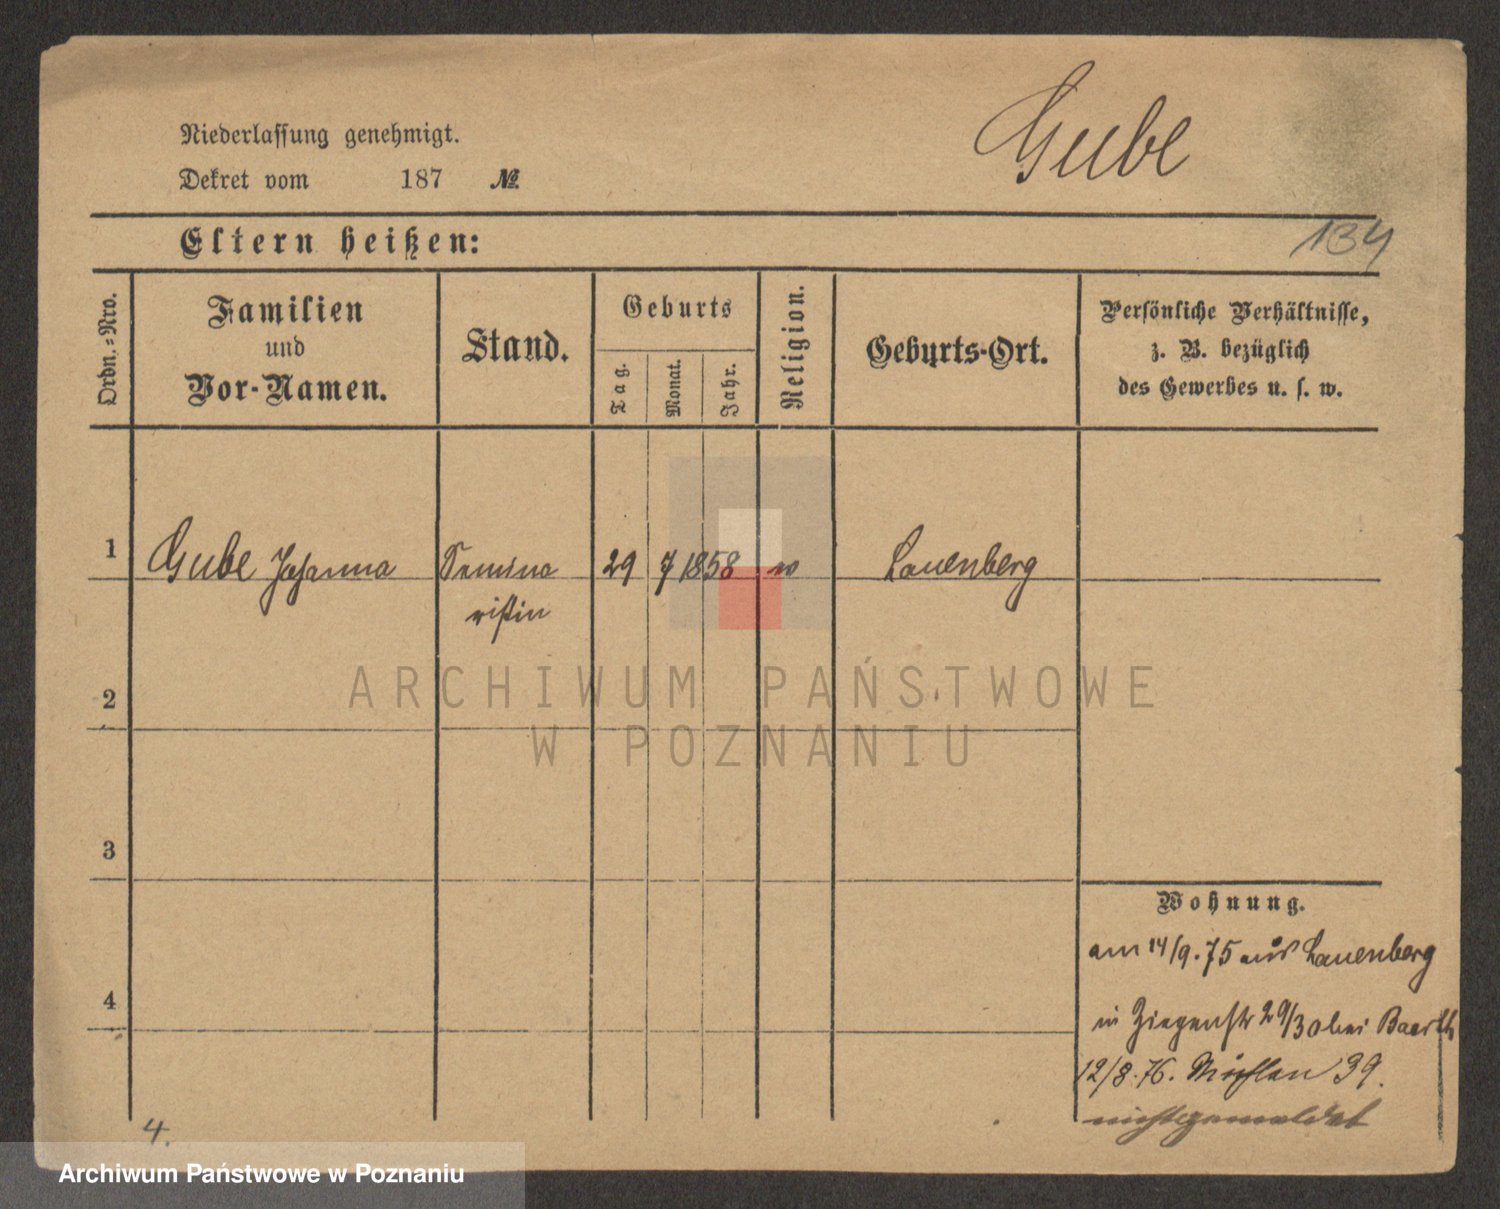 Gube
Niederlassung genehmigt.
Dekret vom 187 №
Eltern heißen:
134
Ordn.-Nro.
Familien
und
Vor-Namen.
Stand.
Geburts
Tag.
Monat.
Jahr.
Religion.
Geburts-Ort.
Persönliche Verhältnisse,
z. B. bezüglich
des Gewerbes u. s. w.
1 Gube Johanna Semina 29 7 1858 Lauenberg
ristin
2
3
4
Wohnung.
am 14/9.75 aus Lauenberg
in Ziegenstr 29/30 bei Baarth
12/8.76. Mühlen 39.
nichtgemeldet
4.
ARCHIWUM PAŃSTWOWE
W POZNANIU
Archiwum Państwowe w Poznaniu